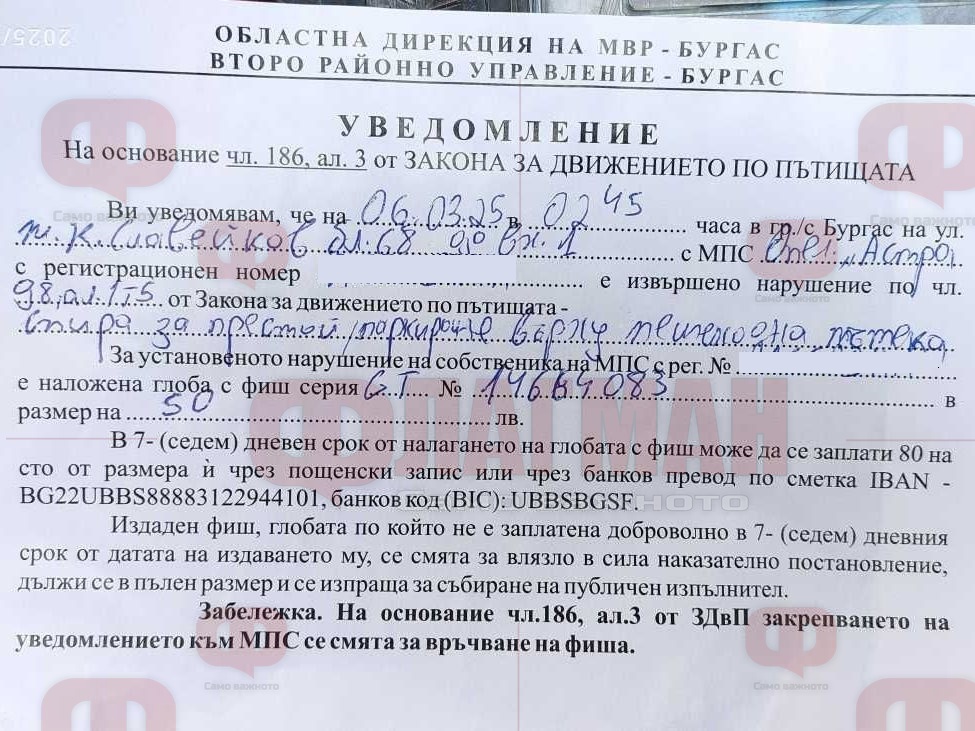 ОБЛАСТНА ДИРЕКЦИЯ НА МВР - БУРГАС
ВТОРО РАЙОННО УПРАВЛЕНИЕ - БУРГАС
УВЕДОМЛЕНИЕ
На основание чл. 186, ал. 3 от ЗАКОНА ЗА ДВИЖЕНИЕТО ПО ПЪТИЩАТА
Ви уведомявам, че на 06.03.25 в 02 45 часа в гр./с Бургас на ул.
ж.к Славейков бл.68 до вх.1 с МПС Опел „Астра“
с регистрационен номер е извършено нарушение по чл.
98, ал.1, т.5 от Закона за движението по пътищата -
спира за престой/паркиране върху пешеходна пътека
За установеното нарушение на собственика на МПС с рег. №
е наложена глоба с фиш серия GT № 14684083 в
размер на 50 лв.
В 7- (седем) дневен срок от налагането на глобата с фиш може да се заплати 80 на
сто от размера ѝ чрез пощенски запис или чрез банков превод по сметка IBAN -
BG22UBBS88883122944101, банков код (BIC): UBBSBGSF.
Издаден фиш, глобата по който не е заплатена доброволно в 7- (седем) дневния
срок от датата на издаването му, се смята за влязло в сила наказателно постановление,
дължи се в пълен размер и се изпраща за събиране на публичен изпълнител.
Забележка. На основание чл.186, ал.3 от ЗДвП закрепването на
уведомлението към МПС се смята за връчване на фиша.
ФЛАГМАН
Само важното
Само важното
Само важното
Само важното